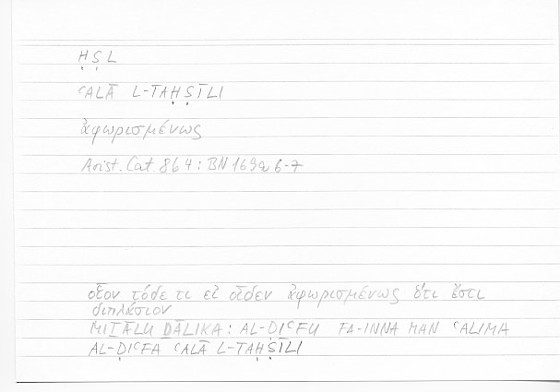 ḤṢL
ʿALĀ L-TAḤṢĪLI
ἀφωρισμένως
Arist. Cat 8b4: BN 169a 6-7
οἷον τόδε τι εἰ οἶδεν ἀφωρισμένως ὅτι ἔστι
διπλάσιον
MIṮĀLU ḎĀLIKA: AL-ḌIʿFU FA-INNA MAN ʿALIMA
AL-ḌIʿFA ʿALĀ L-TAḤṢĪLI